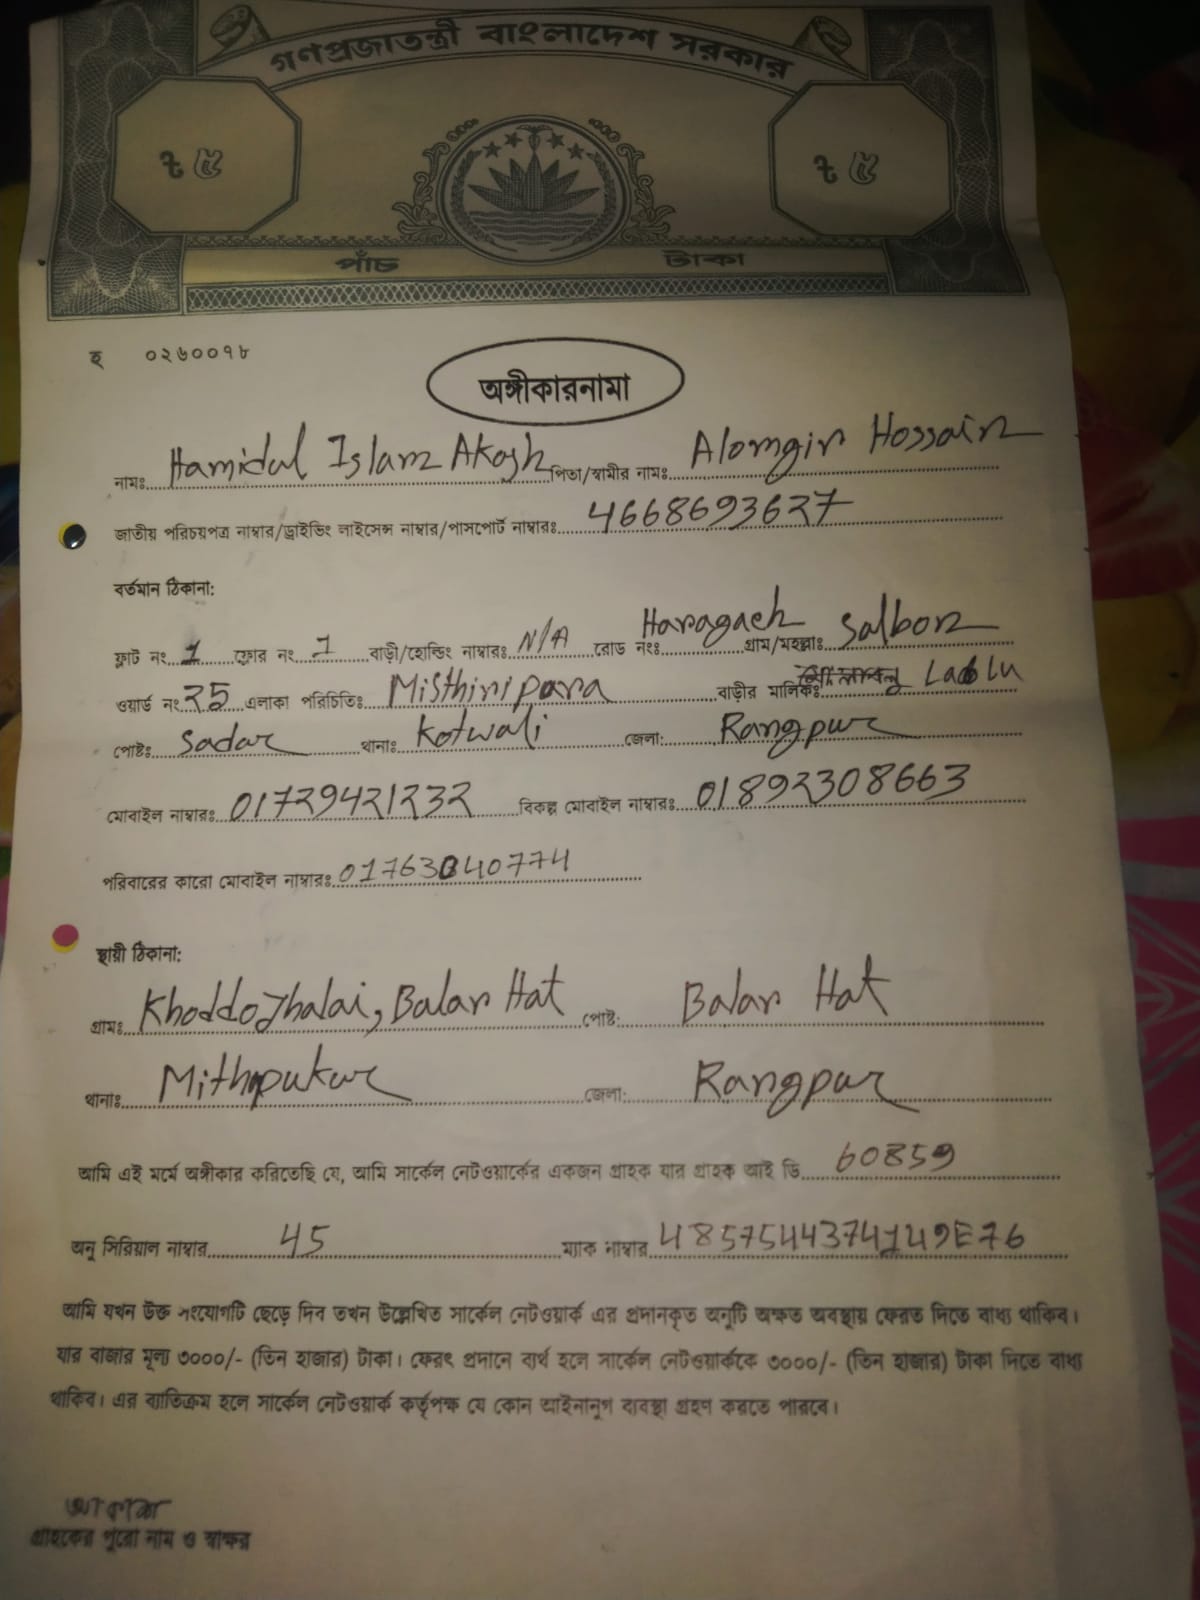 গণপ্রজাতন্ত্রী বাংলাদেশ সরকার
৳ ৫ ৳ ৫
পাঁচ টাকা
হ ০২৬০০৭৮
অঙ্গীকারনামা
নামঃ Hamidul Islam Akash পিতা/স্বামীর নামঃ Alomgir Hossain
জাতীয় পরিচয়পত্র নাম্বার/ড্রাইভিং লাইসেন্স নাম্বার/পাসপোর্ট নাম্বারঃ 4668693627
বর্তমান ঠিকানা:
ফ্লাট নং 1 ফ্লোর নং 1 বাড়ী/হোল্ডিং নাম্বারঃ N/A রোড নংঃ Haragach গ্রাম/মহল্লাঃ Salbon
ওয়ার্ড নং 25 এলাকা পরিচিতিঃ Misthiripara বাড়ীর মালিকঃ Lablu
পোষ্টঃ Sadar থানাঃ Kotwali জেলা: Rangpur
মোবাইল নাম্বারঃ 01729421232 বিকল্প মোবাইল নাম্বারঃ 01892308663
পরিবারের কারো মোবাইল নাম্বারঃ
স্থায়ী ঠিকানা:
গ্রামঃ Khoddojhalai, Balar Hat পোষ্ট: Balar Hat
থানাঃ Mithapukur জেলা: Rangpur
আমি এই মর্মে অঙ্গীকার করিতেছি যে, আমি সার্কেল নেটওয়ার্কের একজন গ্রাহক যার গ্রাহক আই ডি 60859
অনু সিরিয়াল নাম্বার 45 ম্যাক নাম্বার 4857544374149E76
আমি যখন উক্ত সংযোগটি ছেড়ে দিব তখন উল্লেখিত সার্কেল নেটওয়ার্ক এর প্রদানকৃত অনুটি অক্ষত অবস্থায় ফেরত দিতে বাধ্য থাকিব।
যার বাজার মূল্য ৩০০০/- (তিন হাজার) টাকা। ফেরৎ প্রদানে ব্যর্থ হলে সার্কেল নেটওয়ার্ককে ৩০০০/- (তিন হাজার) টাকা দিতে বাধ্য
থাকিব। এর ব্যতিক্রম হলে সার্কেল নেটওয়ার্ক কর্তৃপক্ষ যে কোন আইনানুগ ব্যবস্থা গ্রহণ করতে পারবে।
আকাশ
গ্রাহকের পুরো নাম ও স্বাক্ষর